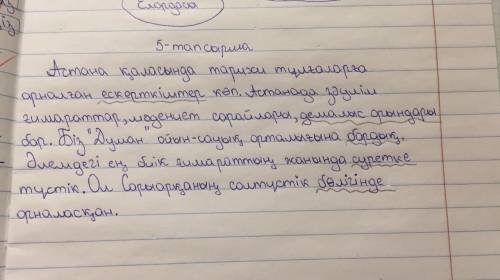 Елордада
5-тапсырма
Астана қаласында тарихи тұлғаларға
орналған ескерткіштер көп. Астанада зәулім
ғимараттар, мәдениет сарайлары, демалыс орындары
бар. Біз "Думан" ойын-сауық орталығына бардық.
Әлемдегі ең биік ғимараттың жанында суретке
түстік. Ол Сарыарқаның солтүстік бөлігінде
орналасқан.